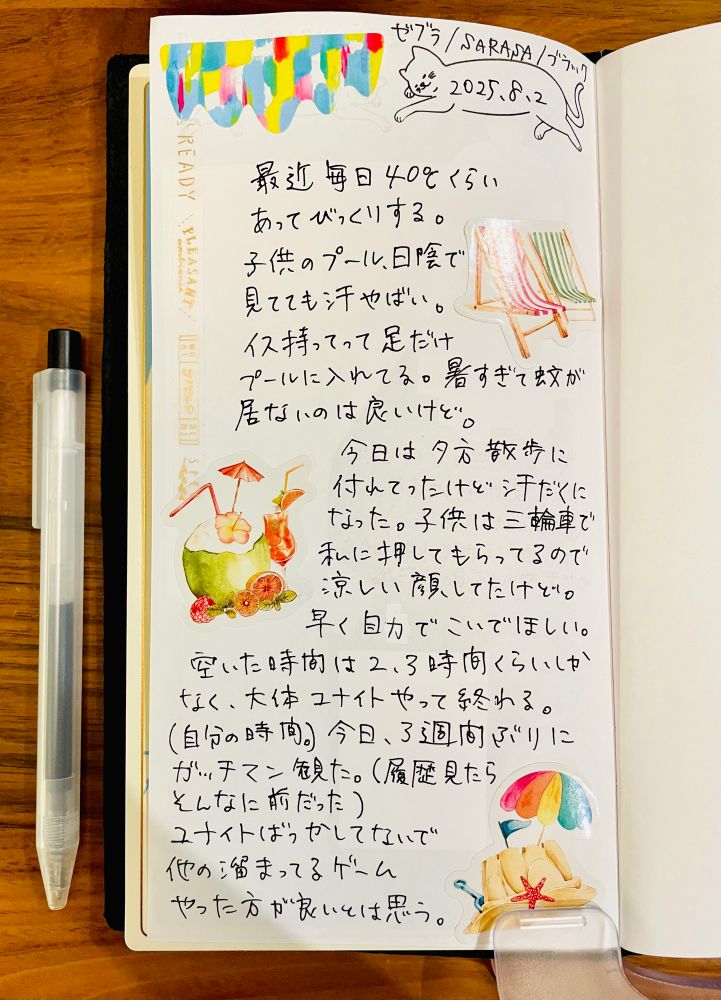 ゼブラ/SARASA/ブラック
2025.8.2
READY
PLEASANT
最近毎日40℃くらい
あってびっくりする。
子供のプール、日陰で
見てても汗やばい。
イス持ってって足だけ
プールに入れてる。暑すぎて蚊が
居ないのは良いけど。
今日は夕方散歩に
付れてったけど汗だくに
なった。子供は三輪車で
私に押してもらってるので
涼しい顔してたけど。
早く自力でこいでほしい。
空いた時間は2、3時間くらいしか
なく、大体ユナイトやって終わる。
(自分の時間。)今日、3週間ぶりに
ガッチマン観た。(履歴見たら
そんなに前だった)
ユナイトばっかしてないで
他の溜まってるゲーム
やった方が良いとは思う。